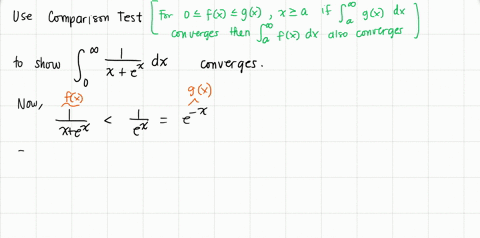 Use Comparison Test [ For 0 ≤ f(x) ≤ g(x), x ≥ a if ∫_a^∞ g(x) dx
converges then ∫_a^∞ f(x) dx also converges ]
to show ∫_0^∞ 1/(x + e^x) dx converges.
Now, f(x) g(x)
1/(x+e^x) < 1/e^x = e^-x